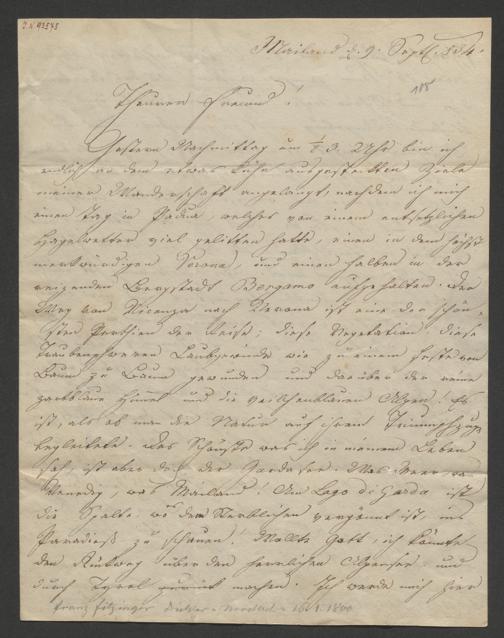 I.N. 93545
Mailand d. 9. Sept. 854.
188
Theurer Freund!
Gestern Nachmittag um ½ 3 Uhr bin ich
endlich an dem etwas kühn ausgesteckten Ziele
meiner Wanderschaft angelangt, nachdem ich mich
einen Tag in Padua, welches von einem entsetzlichen
Hagelwetter viel gelitten hatte, einen in dem höchst
merkwürdigen Verona, und einen halben in der
reizenden Bergstadt Bergamo aufgehalten. Der
Weg von Vicenza nach Verona ist eine der schön-
sten Parthien der Reise; diese Vegetation, diese
traubenschweren Laubgewinde wie zu einem Feste von
Baum zu Baum gewunden und darüber der reine
zartblaue Himmel und die veilchenblauen Alpen! Es
ist, als ob man die Natur auf ihrem Triumphzug
begleitete. Das Schönste was ich in meinem Leben
sah, ist aber doch der Gardasee. Was Meer, was
Venedig, was Mailand! Am Lago di Garda ist
die Spalte, wo dem Sterblichen vergönnt ist, ins
Paradies zu schauen! Wollte Gott, ich könnte
den Rückweg über den herrlichen Alpensee und
durch Tyrol zurück machen. Ich werde mich hier
Franz Fitzinger Dichter 1800